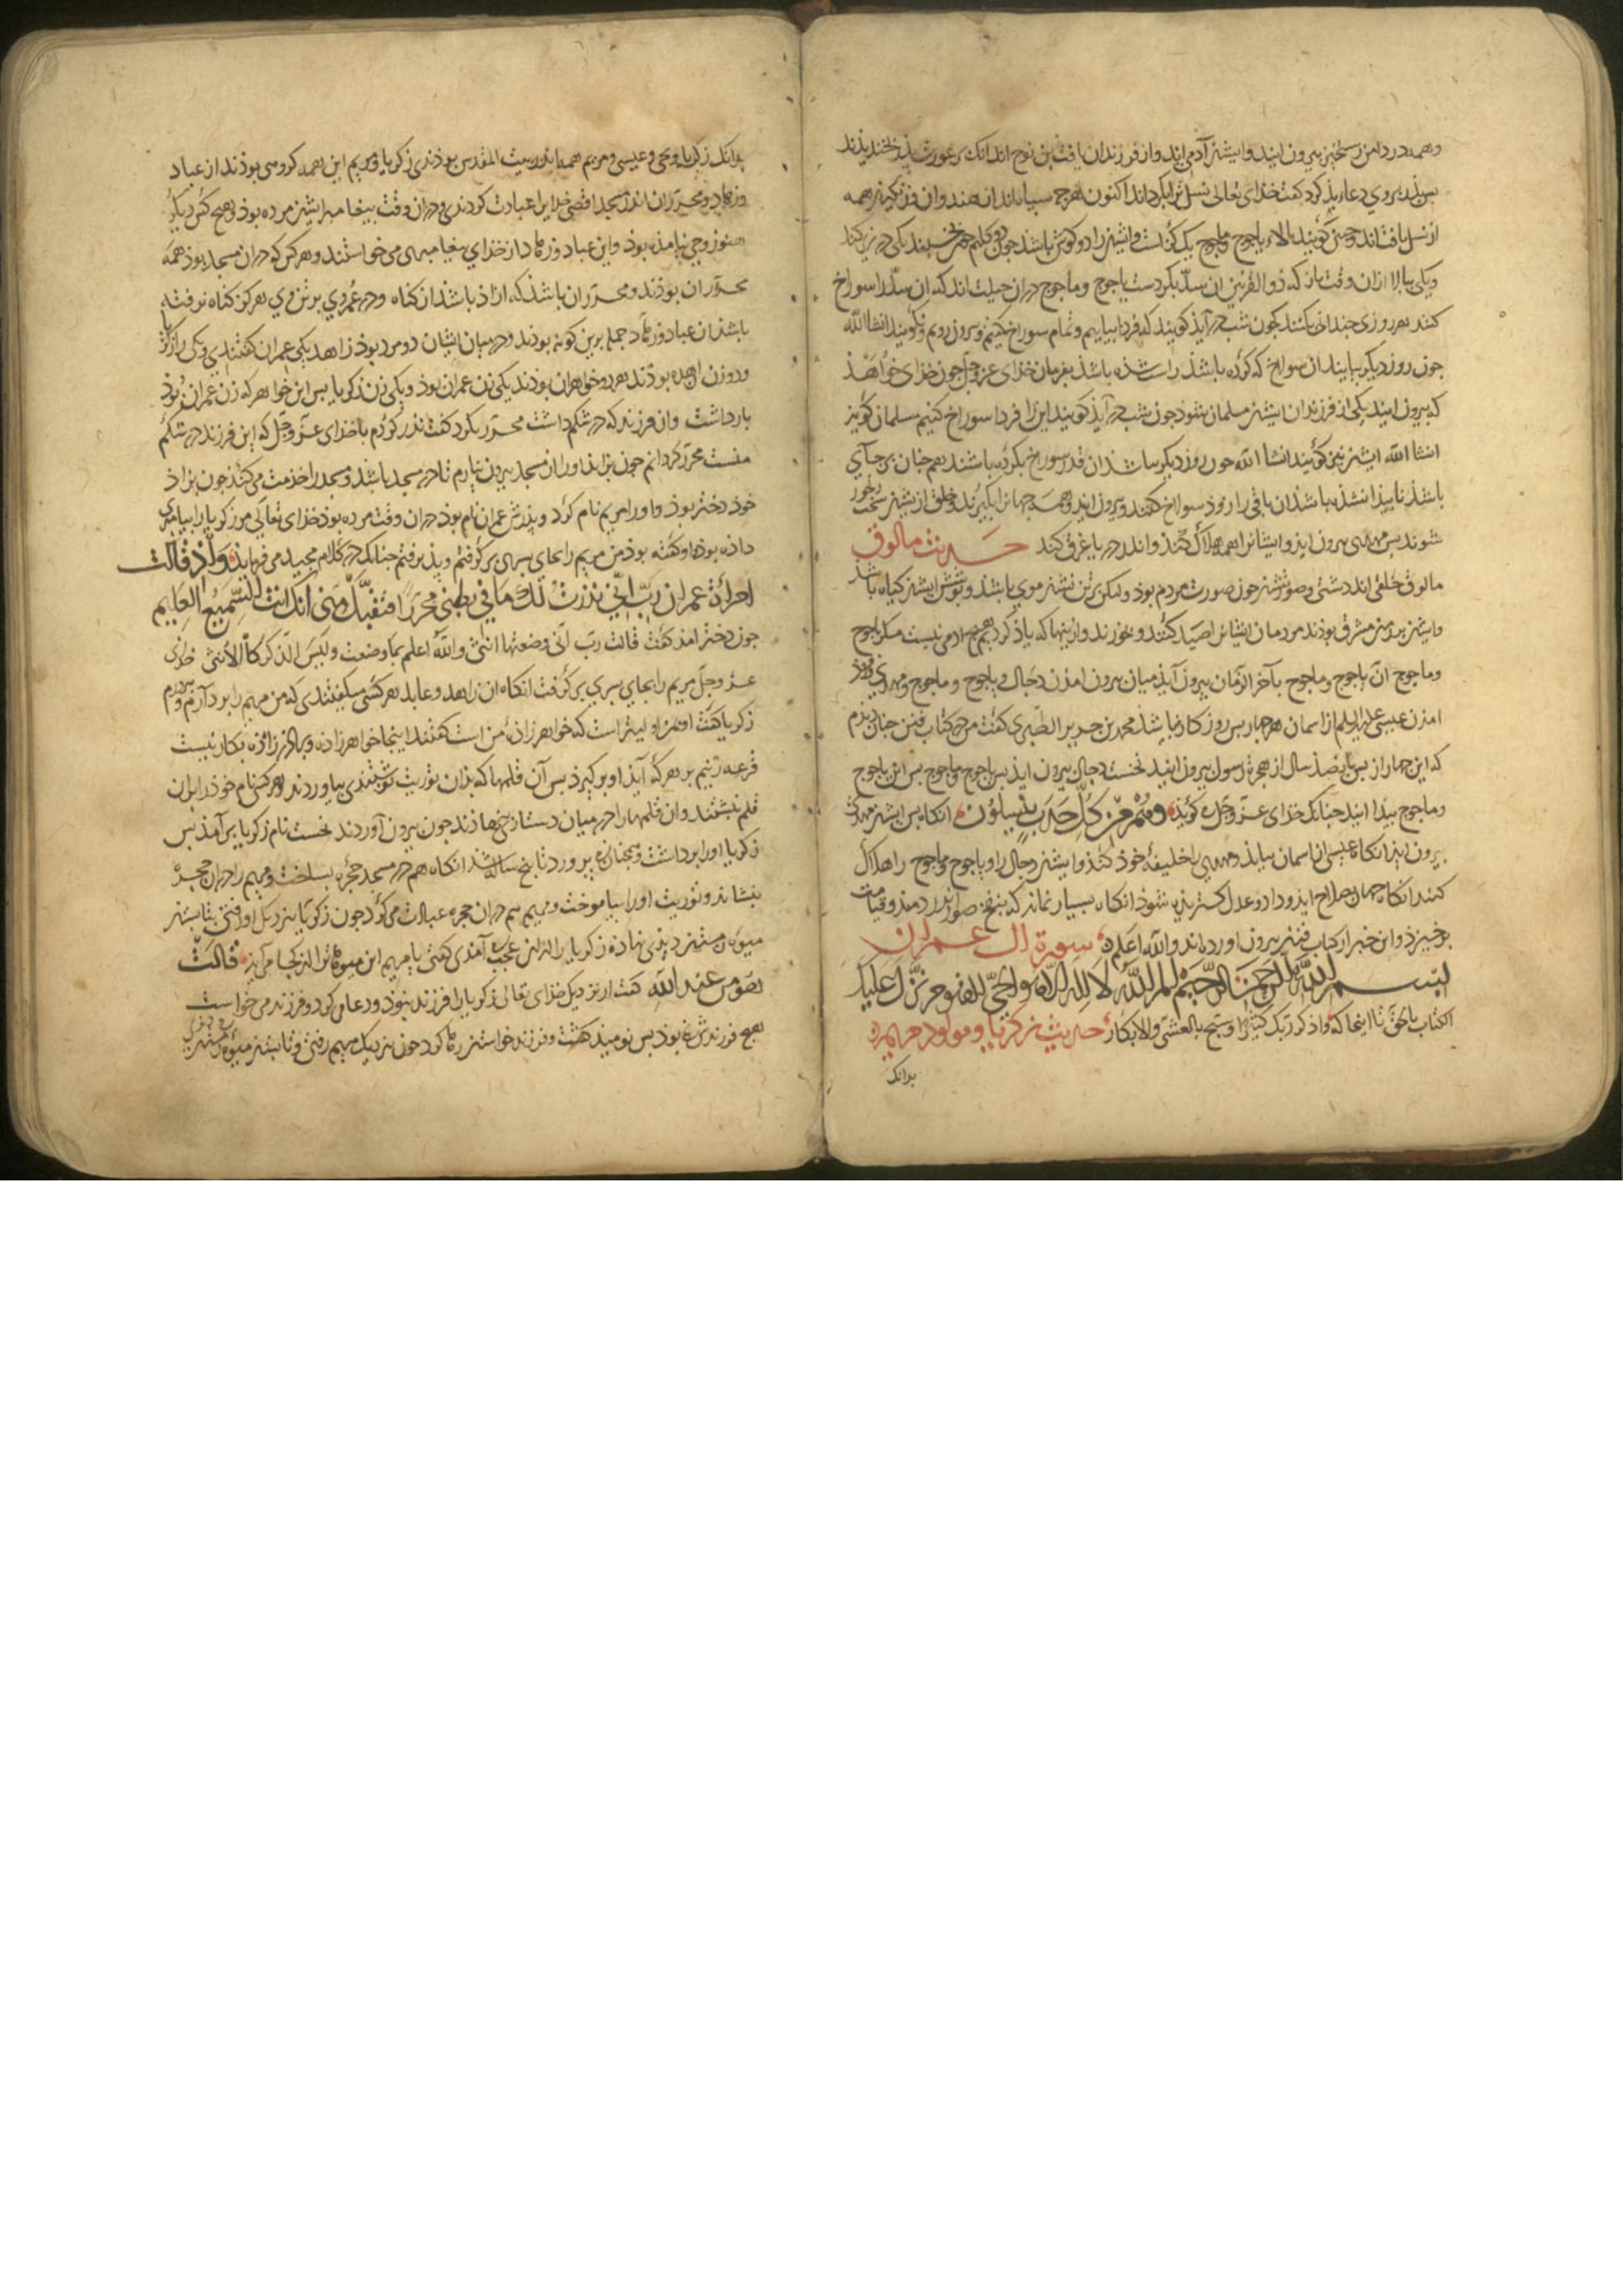 وهمه در دامن رستخیز بیرون آیند وایشنز آدمی اند واز فرزندان یافث بن نوح اند آنک بر عورت پذر خندیذند
بس پذر بروی دعاء بذ کرد کفت خذای تعالی نسلش را بکرداند اکنون هرچ سیاه‌اند از هندوان وز نکیز همه
از نسل یافث‌اند وجنین کویند بالاء یاجوج وماجوج یک کز است وایشنز را دو کوش باشد جون دو کلیم جون بخسبند یکی در زیر کنند
ویکی ببالا از ان وقت باز که ذو القرنین ان سد بکردست یاجوج وماجوج در ان حیلت اند که ان سد را سوراخ
کنند هر روزی جندانی بکنند جون شب در آید کویند که فردا بیاییم وتمام سوراخ کنیم وبیرون رویم ونکویند انشا الله
جون روز دیکر بیایند ان سوراخ که کرده باشند راست شذه باشذ بفرمان خذای عز وجل جون خذای خواهذ
که بیرون ایند یکی از فرزندان ایشنز مسلمان بشود جون شب در آید کویند این را فردا سوراخ کنیم مسلمان کویذ
انشا الله ایشنز نیز کویند انشا الله جون روز دیکر بیاشند ان قدر سوراخ بکرده باشند همجنان بر جای
باشذ ناپیذا نشذه باشد ان باقی را زود سوراخ کنند وبیرون ایند وهمه جهان را بکیرند وخلق از یشنز سخت رنجور
شوند بس مهدی بیرون ایذ وایشانرا همه هلاک کند واندر دریا غرق کند حدیث مالوق
مالوق خلقی اند دشتی وصورتشنز جون صورت مردم بوذ ولیکن بر تن تشنز موی باشد وپوشش ایشنز کیاه باشد
وایشنز بزمین مشرق بوذند مردمان ایشانرا صید کنند وبخورند واز ینها که یاذ کردیم هیج ادمی نیست مکر یاجوج
وماجوج ان یاجوج وماجوج بآخر الزمان بیرون آیند میان بیرون امذن دجال ویاجوج وماجوج ومهدی وفروذ
امذن عیسی علیه السلم از اسمان هر جهار بس روزکار نباشد محمد بن جریر الطبری کفت من در کتاب فتن جنان دیذم
که این جهار از بس پانصذ سال از هجرت رسول بیرون ایند نخست دجال بیرون ایذ بس یاجوج وماجوج بس این یاجوج
وماجوج بیذا ایند جنانک خذای عز وجل کویذ وهم من کل حدب ینسلون انکاه بس ایشنز مهدی
بیرون ایذ انکاه عیسی از اسمان بیایذ ومهدی را خلیفهٔ خوذ کند وایشنز دجال را ویاجوج وماجوج را هلاک
کنند انکاه جهان بصلاح ایذ وداد وعدل کسترذه شوذ انکاه بسیار نماند که بنفخ صور اندر دمند وقیامت
برخیزذ واین خبر از کتاب فتنز بیرون اورده‌اند والله اعلم سورة ال عمران
بسم الله الرحمن الرحیم الم الله لا اله الا هو الحی القیوم نزل علیک
الکتاب بالحق تا اینجا که واذکر ربک کثیرا وسبح بالعشی والابکار حدیث زکریا ومولود مریم
بدانک
بدانک زکریا ویحیی وعیسی ومریم همه باندر بیت المقدس بوذندی زکریا ومریم این همه کروهی بوذند از عباد
وزهاد ومحرران اندر مسجد اقصی خدایرا عبادت کردندی ودر ان وقت پیغامبر ایشنز مرده بوذ وهیج کس دیکر
هنوز وحی نیامذه بوذ واین عباد وزهاد از خذای پیغامبری می خواستند وهر کس که در ان مسجد بوذ همه
محرران بوذند ومحرر ان باشذ که ازاذ باشذ از کناه ودر عمر وی بر تن وی هرکز کناه نرفته
باشذ ان عباد وزهاد جمله برین کونه بوذند ودر میان ایشان دو مرد بوذ زاهد یکی عمران کفتندی ویکی را زکریا
ودو زن اهل ده بوذند هر دو خواهران بوذند یکی زن عمران بوذ ویکی زن زکریا بس این خواهر که زن عمران بوذ
بار داشت وان فرزند که در شکم داشت محرر بکرد کفت نذر کردم با خذای عز وجل که این فرزند در شکم
منست محرر کردانم جون بزاید اورا از مسجد بیرون نیارم تا در مسجد باشد ومسجد را خذمت می کند جون بزاذ
خوذ دختر بوذ واورا مریم نام کرد وپذرش عمران نام بوذ در ان وقت مرده بوذ خذای تعالی مر زکریا را پیامبری
داذه بوذ واو کفته بوذ من مریم را بجای پسری بر کرفتم وپذیرفتم جنانک در کلام مجید می فرماید واذ قالت
امرأة عمران رب انی نذرت لک ما فی بطنی محررا فتقبل منی انک انت السمیع العلیم
جون دختر امذ کفت قالت رب انی وضعتها انثی والله اعلم بما وضعت ولیس الذکر کالانثی خذای
عز وجل مریم را بجای پسری بر کرفت انکاه ان زاهد وعابد هر کسی میکفتندی که من مریم را بپرورم
زکریا کفت او مرا اولیتر است که خواهر زاذهٔ من است کفتند اینجا خواهر زاذه وبرادر زاذه بکار نیست
قرعه زنیم بر هر که آیذ او بر کیرذ بس آن قلمها که بذان توریت نوشتندی بیاوردند وهر کسی نام خوذ بران
قلم نبشتند وان قلمها را در میان دستار نهاذند جون بیرون آوردند نخست نام زکریا بر آمذ بس
زکریا اورا برداشت وهمجنان می پرورد تا پنج ساله شد انکاه هم در مسجد حجره بساخت ومریم را در ان حجره
بنشاند وتوریت اورا بیاموخت ومریم هم در ان حجره عبادت می کرد جون زکریا بنزدیک او رفتی بتابستنز
میوهٔ زمستنز دیذی نهاذه زکریا را از ان عجب آمذی کفتی یا مریم این میوه ترا از کجا می آید قالت
هو من عند الله کفت از نزدیک خذای تعالی زکریا را فرزند نبوذ ودعا می کرد وفرزند می خواست
هیج فرزندش نه بوذ بس نومید کشت وفرزند خواستن رها کرد جون بنزدیک مریم رفتی وتابستنز میوهٔ زمستنز دیذی